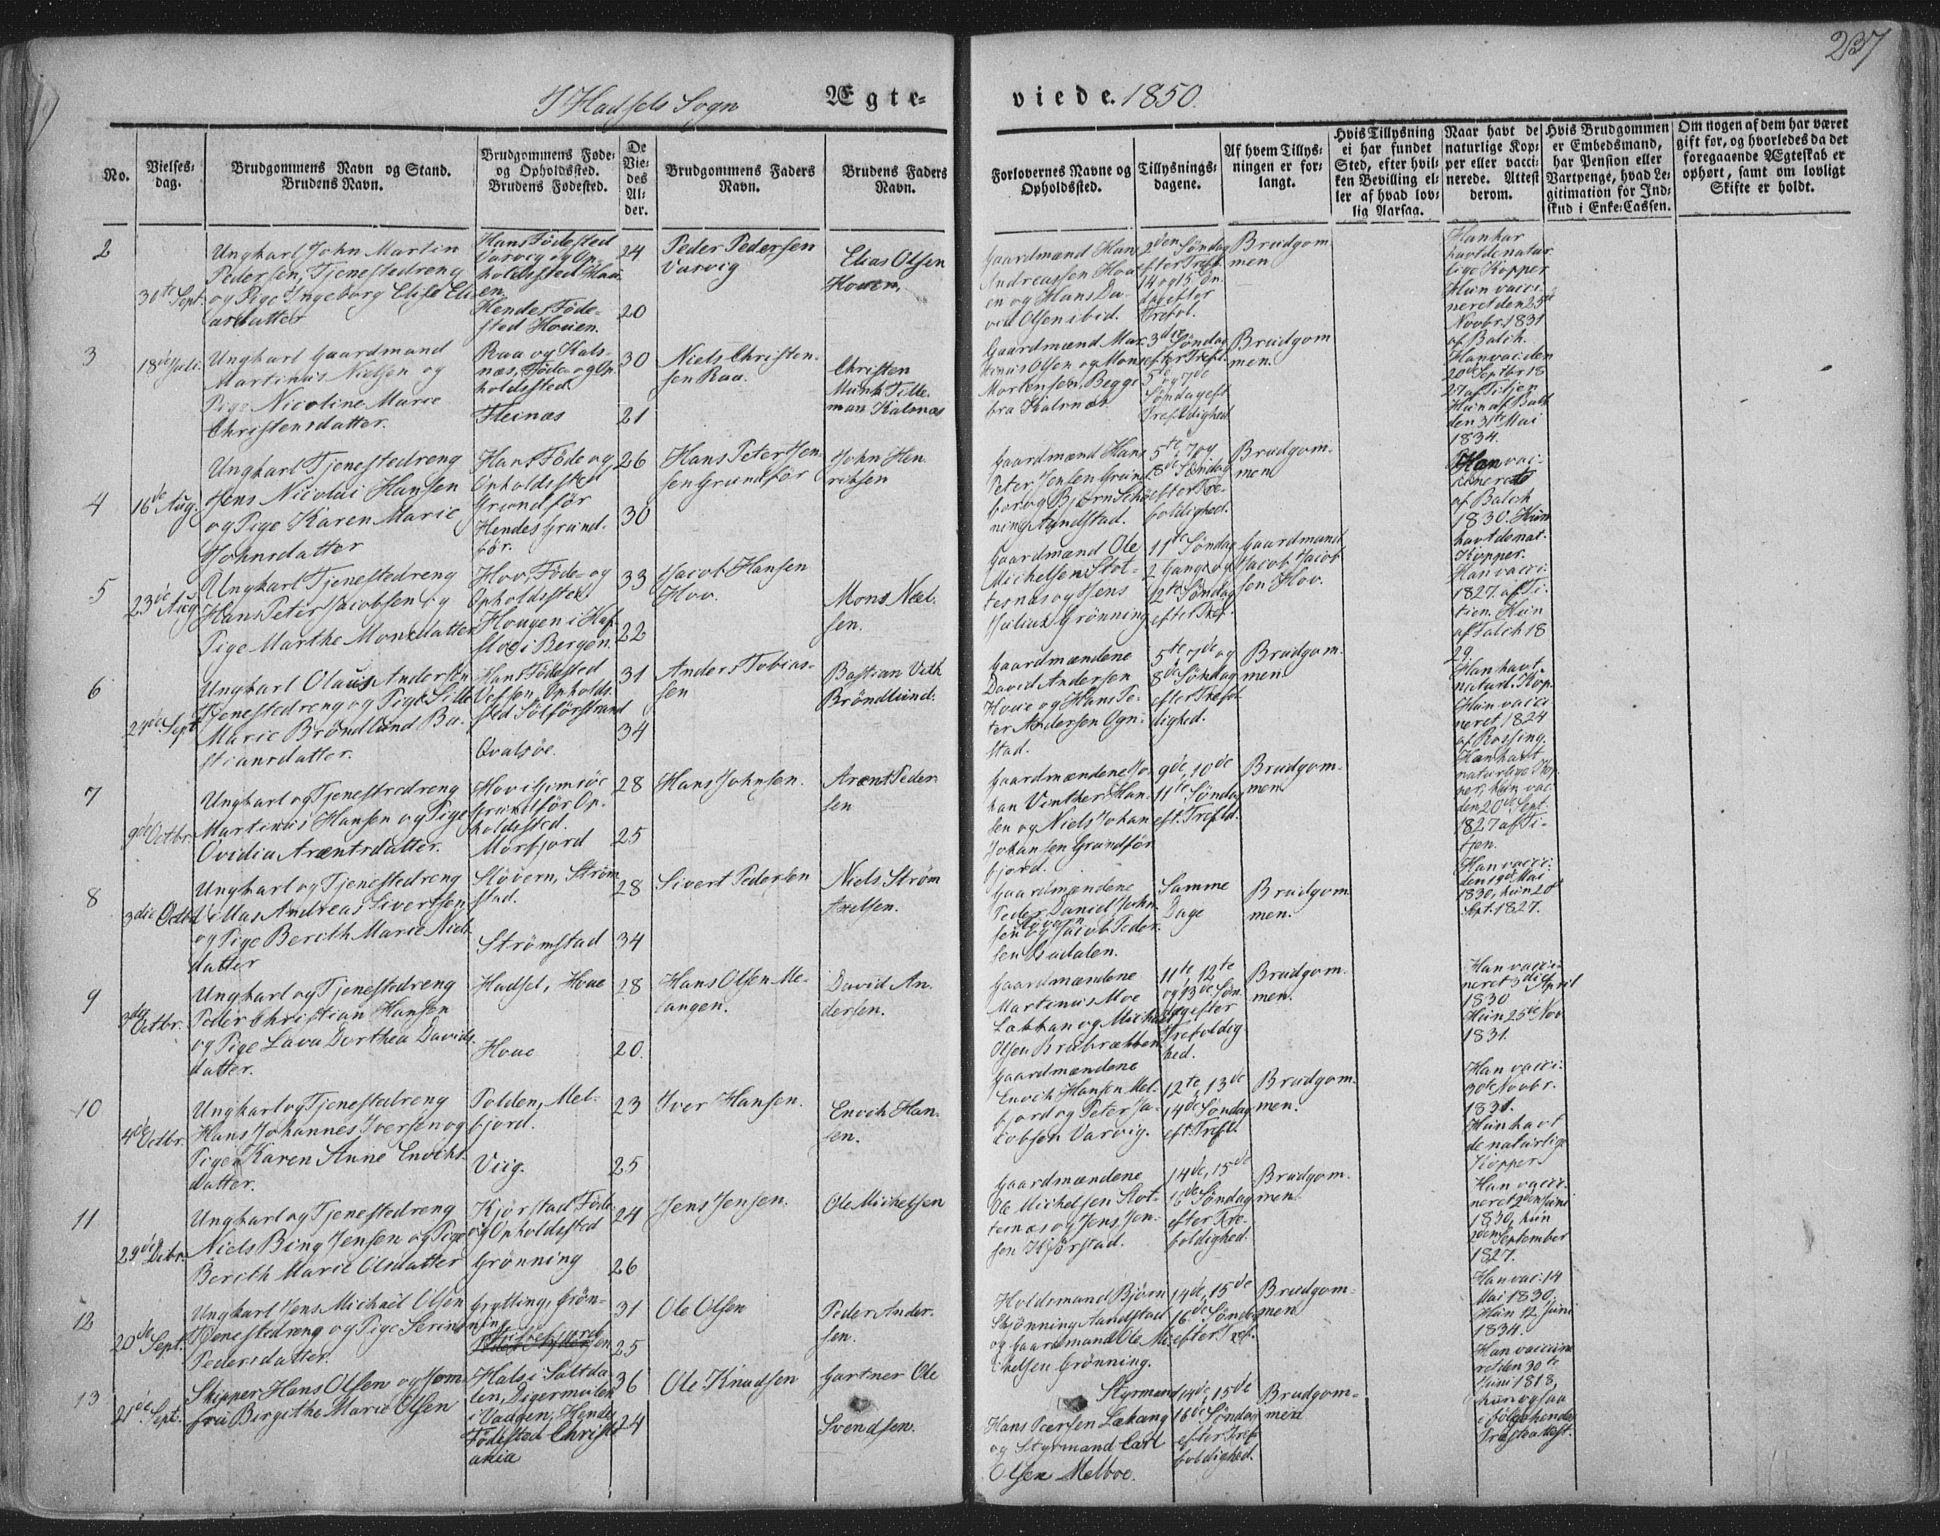 237
I Hadsels Sogn Ægte-
viede. 1850.
No.
Vielses-
dag.
Brudgommens Navn og Stand.
Brudens Navn.
Brudgommens Føde-
og Opholdssted.
Brudens Fødested.
De
Vie-
des
Al-
der.
Brudgommens Faders
Navn.
Brudens Faders
Navn.
Forlovernes Navne og
Opholdssted.
Tillysnings-
dagene.
Af hvem Tillys-
ningen er for-
langt.
Hvis Tillysning
ei har fundet
Sted, efter hvil-
ken Bevilling el-
ler af hvad lov-
lig Aarsag.
Naar havt de
naturlige Kop-
per eller vacci-
nerede. Attest
derom.
Hvis Brudgommen
er Embedsmand,
har Pension eller
Vartpenge, hvad Le-
gitimation for Ind-
skud i Enke-Cassen.
Om nogen af dem har været
gift før, og hvorledes da det
foregaaende Ægteskab er
ophørt, samt om lovligt
Skifte er holdt.
2
30te Sept.
Ungkarl John Martin
Pedersen, Tjenestedreng
og Pige Ingeborg Elise Eli-
asdatter
Hans Födested
Varvig og Op-
holdssted Hau-
en.
Hendes Föde-
sted Houen.
24
20
Peder Pedersen
Varvig
Elias Olsen
Houen.
Gaardmænd Hans
Andreassen Hou-
en og Hans Da-
vid Olsen ibid.
2den Søndag
efter Tref.
14 og 15 Ön-
dag efter
Trefol.
Brudgom
men
Han har
havt de natur
lige Kopper
Hun vacci-
neret den 25de
Novbr. 1831
af Balch.
3
18de Juli.
Ungkarl Gaardmand
Martinus Nielsen og
Pige Nicoline Marie
Christensdatter.
Raa og Kals-
næs, Föde- og Op-
holdssted
Fleinæs
30
21
Niels Christen-
sen Raa.
Christen
Munk Tille-
man Kalsnæs
Gaardmænd Mar-
tinus Olsen og Mons
Mortensen, Begge
fra Kalsnæs.
3die Søndag
efter Tref.
5te og 7de
Søndag eft.
Trefoldighed
Brudgom
men.
Han vac. den
20de Septbr 18
27 af Titjen
Hun af Balch
den 31te Mai
1834.
4
16de Aug.
Ungkarl Tjenestedreng
Jens Nicolai Hansen
og Pige Karen Marie
Johnsdatter
Hans Föde og
Opholdssted
Grundför
Hendes Grund-
för.
26
30
Hans Peter Jen-
sen Grundför
John Hen-
riksen
Gaardmænd Hans
Peter Jensen Grund-
for og Bjørn Schö-
ning Aandstad.
5te, 7 og
8de Søndag
efter Tre-
foldighed.
Brudgom-
men
Han vac-
cineret
af Balch
1830. Hun
havt de nat.
Kopper.
5
23de Aug
Ungkarl Tjenestedreng
Hans Peter Jacobsen og
Pige Marthe Monsdatter
Hov, Föde- og
Opholdssted
Hougen i Haf-
sloe i Bergen.
33
22
Jacob Hansen
Hov.
Mons Niel-
sen.
Gaardmænd Ole
Michelsen Slot-
ternæs og Jens
Julius Grönning
11te Søndag
2 Gange og
12te Søndag
efter Tref.
Gaardmand
Jacob Jacob
sen Hov.
Han vacci
1827 af Ti-
tien. Hun
af Falch 18
29
6
24de Sept
Ungkarl Olaus Andersen
Tjenestedreng og Pige Sille
Marie Bröndlund Ba-
stiansdatter.
Hans Födested
Vessen, Opholds-
sted Sölförstrand
Qvalsöe.
31
34
Anders Tobias-
sen
Bastian Vith
Bröndlund.
Gaardmændene
David Andersen
Houe og Hans Pe-
ter Andersen Ogn-
stad.
5te, 7de og
8de Søndag
efter Trefol
dighed.
Brudgom-
men
Han havt
naturl. Kop.
Hun vacci
neret 1824
af Rossing.
7
9de Octbr.
Ungkarl og Tjenestedreng
Martinus Hansen og Pige
Ovidia Arentsdatter.
Hov i Gimsöe
Grundför Op-
holdssted.
Morfjord
28
25
Hans Johnsen.
Arent Peder-
sen
Gaardmændene Jo-
han Vinther Han-
sen og Niels Johan
Johansen Grundför
fjord.
9de, 10de
11te Søndag
eft. Trefld.
Brudgom-
men
Han havt
naturlige Kop-
per, hun vac.
den 20de Sept.
1827 af Ti-
tjen.
8
3die Octbr
Ungkarl og Tjenestedreng
Elias Andreas Sivertsen
og Pige Berith Marie Niels-
datter
Stövern, Ström
stad.
Strømstad
28
34
Sivert Pedersen
Niels Strøm
Axelsen.
Gaardmændene
Peder Daniel John-
sen Stövern
og Jacob Peder-
sen Budalen.
Samme
Dage
Brudgom
men.
Han vacci-
den 19de Mai
1830, hun 20de
Sept. 1827.
9
3die Octbr.
Ungkarl og Tjenestedreng
Peder Christian Hansen
og Pige Lava Dorthea Davids-
datter.
Hadsel, Houe
Houe
28
20.
Hans Olsen Me-
langen.
David An-
dersen.
Gaardmændene
Martinus Moe
Lækkan og Michael
Olsen Brubrækken
11te, 12te
og 13de Søn-
dag efter
Trefoldig-
hed.
Brudgom-
men.
Han vacci-
neret 3die April
1830
Hun 25de Nov
1831.
10
4de Octbr.
Ungkarl og Tjenestedreng
Hans Johannes Iversen og
Pigen Karen Anne Enochs-
datter.
Polden, Mel-
fjord.
Viig.
23
25
Iver Hansen.
Enoch Han-
sen.
Gaardmændene
Enoch Hansen Mel-
fjord og Peter Ja-
cobsen Varvig.
12te, 13de
14de Søndag
eft. Trefl.
Brudgom-
men.
Han vacci-
30de Novbr.
1831.
Hun havt
de naturlige
Kopper
11
29de Octbr.
Ungkarl og Tjenestedreng
Niels Bing Jensen og Pige
Berith Marie Olsdatter
Kjörstad Föde-
og Opholdssted
Grönning
24
26
Jens Jensen.
Ole Michelsen
Gaardmændene
Ole Michelsen Slot-
ternæs og Jens Jen-
sen Kjörstad.
14de, 15de
16de Søndag
efter Tre-
foldighed.
Brudgom-
men.
Han vacci-
neret 2den Juni
1830, hun
2den September
1827.
12
20de Sept.
Ungkarl Jens Michael Olsen
Tjenestedreng og Pige Serina
Pedersdatter.
Grytting, Grön-
ning
31
25
Ole Olsen
Peder Ander-
sen.
Holdsmand Bjørn
Skjønning Aandstad
og Gaardmand Ole Mi-
chelsen Grönning.
14de, 15de
16de Søndag
efter Tref.
Brudgom-
men
Han vac. 14
Mai 1830,
Hun 12 Juni
1834.
13
21de Sept.
Skipper Hans Olsen og Jom-
fru Birgithe Marie Olsen
Hals i Saltda-
len, Digermulen
i Vaagen, Hendes
Födested Christi-
ania
36
24
Ole Knudsen
Gartner Ole
Svendsen.
Styrmand
Hans Peersen Lekang
og Styrmand Carl
Olsen Melboe.
14de, 15de
16de Søndag
efter Tref
foldighed.
Brudgom-
men
Han vaccine
ret den 30te
Juni 1818,
hun ogsaa
ifølge hendes
Præsteattest.